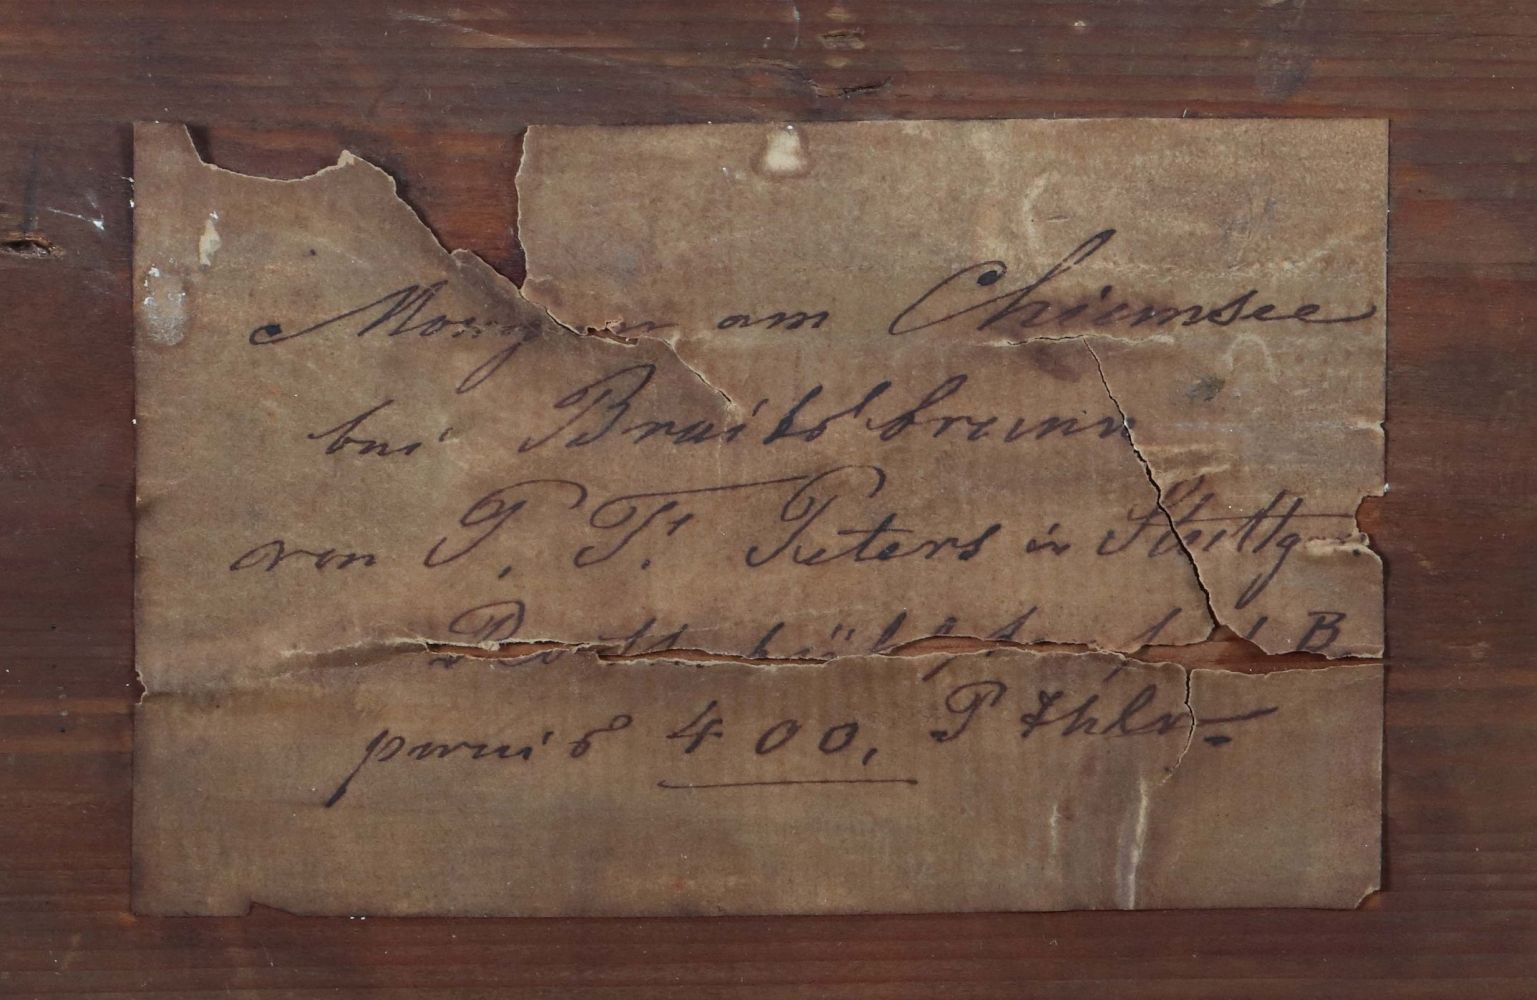 Morgen am Chiemsee
bei Breitsbrunn
von P. F. Peters in Stuttg
B
preis 400, P Thlr-